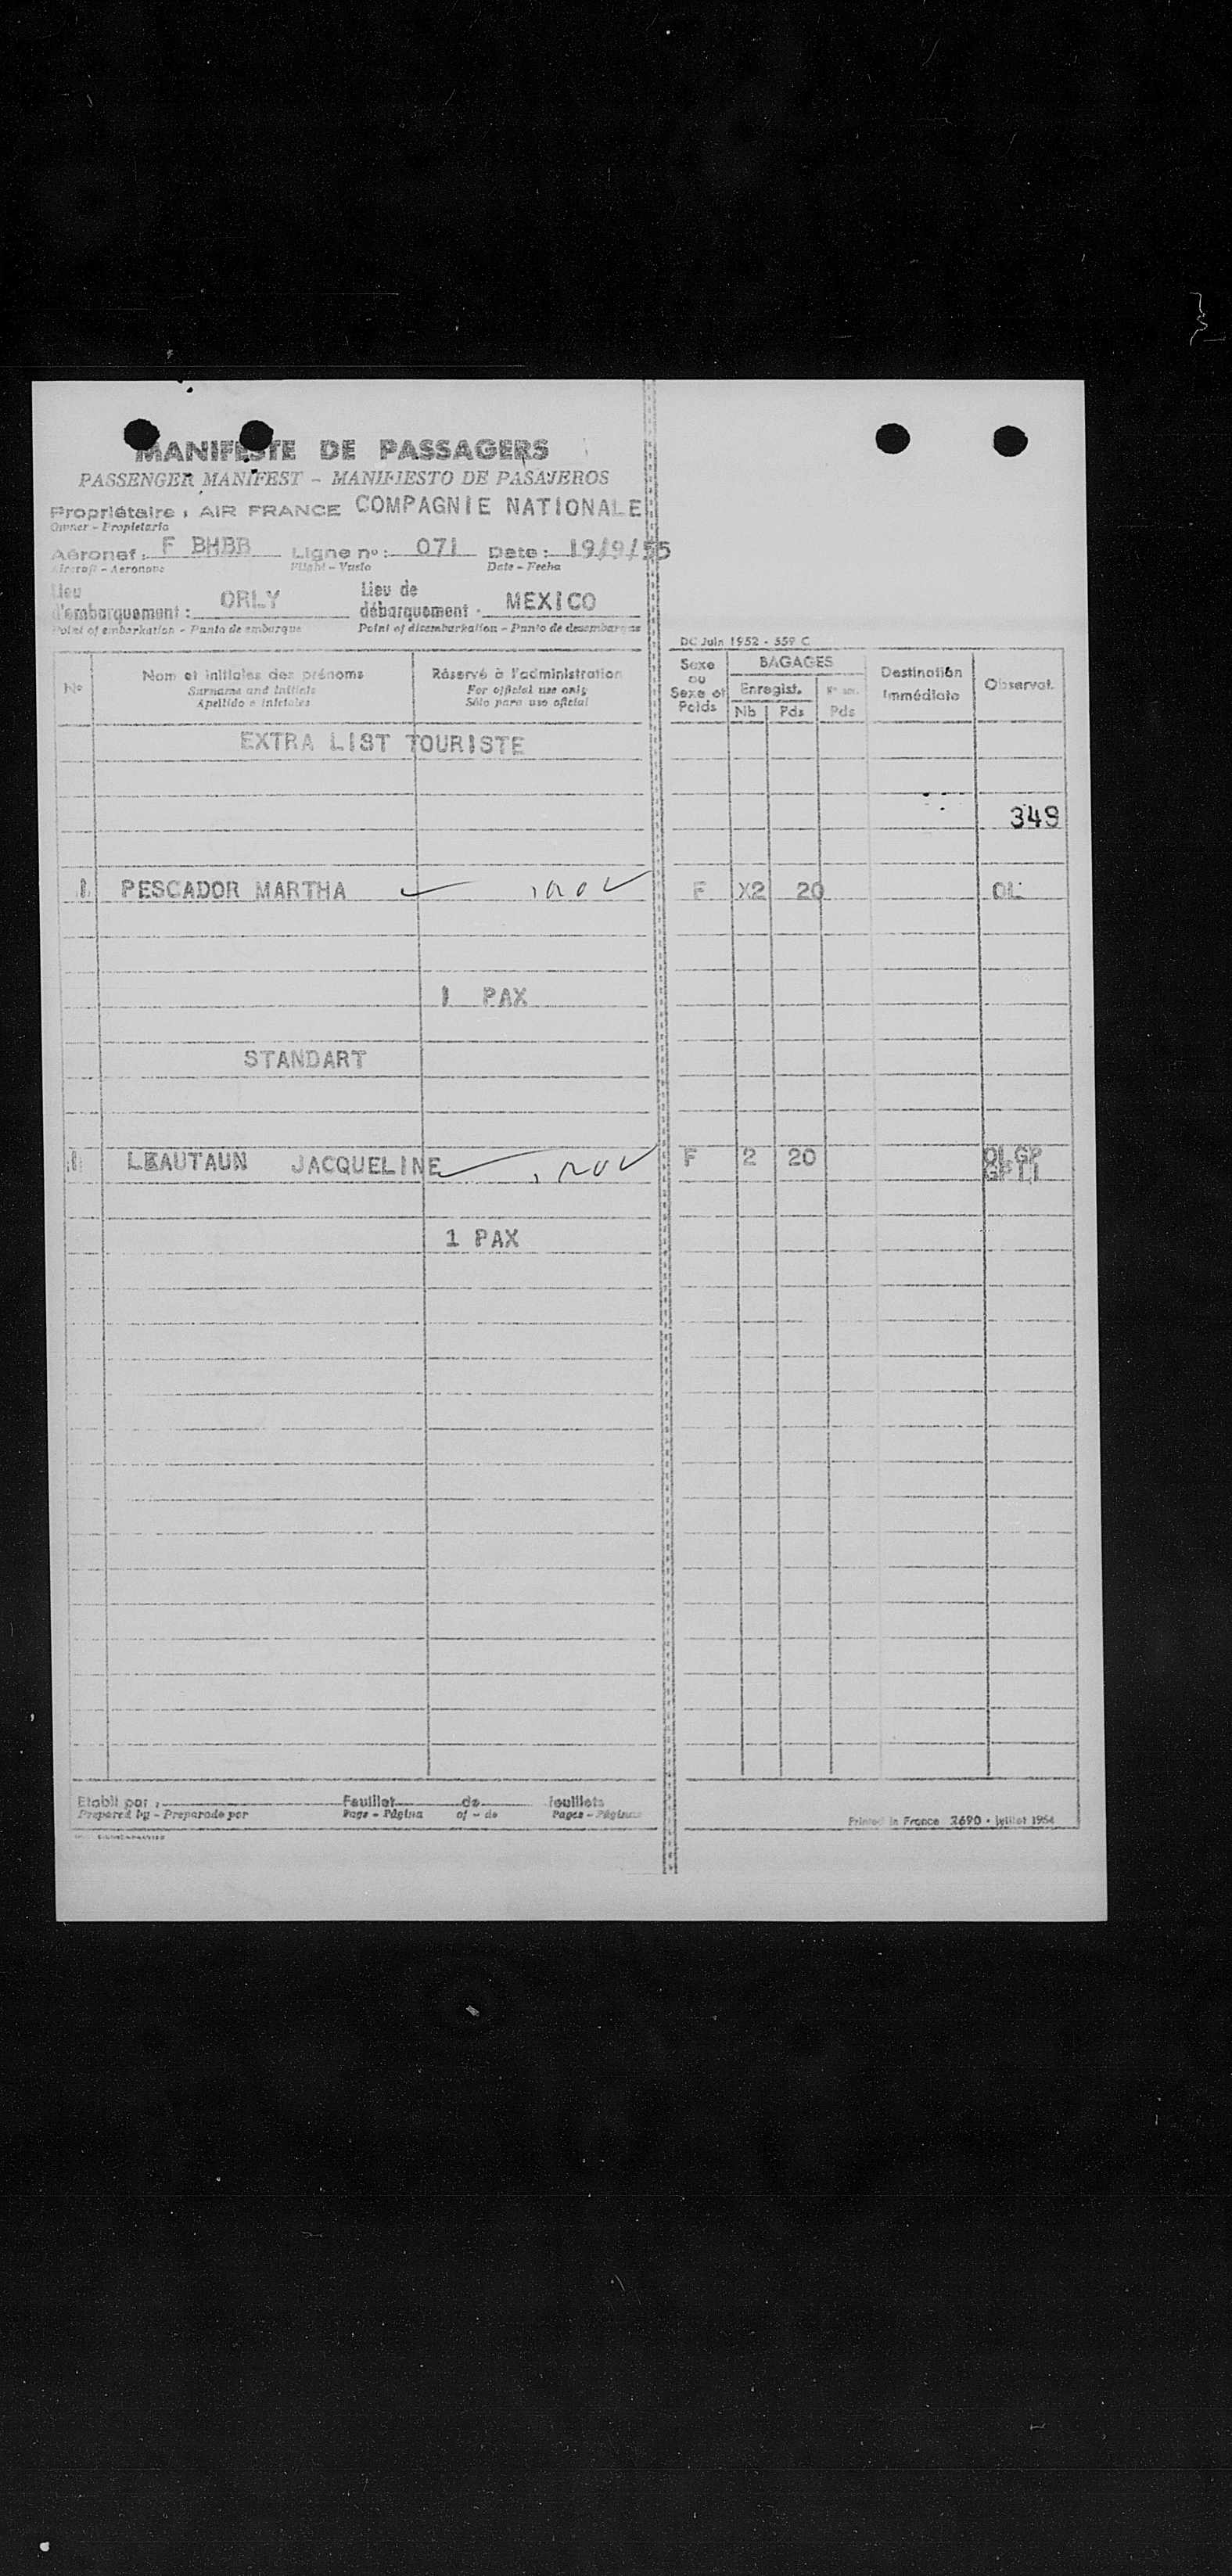 MANIFESTE DE PASSAGERS
PASSENGER MANIFEST - MANIFIESTO DE PASAJEROS
Propriétaire : AIR FRANCE COMPAGNIE NATIONALE
Owner - Propietario
Aéronef : F BHBB Ligne no : 071 Date : 19/9/55
Aircraft - Aeronave Flight - Vuelo Date - Fecha
Lieu d'embarquement : ORLY Lieu de débarquement : MEXICO
Point of embarkation - Punto de embarque Point of disembarkation - Punto de desembarque
DC Juin 1952 - 559 C
No Nom et initiales des prénoms Réservé à l'administration Sexe ou Sexe et Poids BAGAGES Destination Immédiate Observat.
Surname and initials For official use only Enregist.
Apellido e iniciales Sólo para uso oficial Nb Pds Pds
EXTRA LIST TOURISTE
349
1 PESCADOR MARTHA F X2 20 OL
1 PAX
STANDART
1 LEAUTAUN JACQUELINE F 2 20 OLGP
1 PAX
Etabli par : Feuillet de feuillets
Prepared by - Preparado por Page - Página of - de Pages - Páginas
Printed in France 2690 - juillet 1954